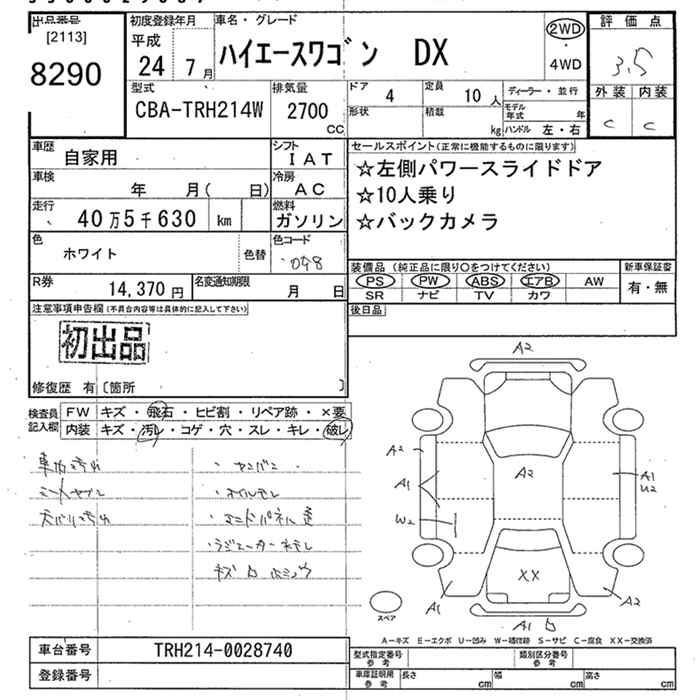 出品番号
[2113]
8290
初度登録年月
平成
24 7月
車名・グレード
ハイエースワゴン DX
2WD
4WD
評価点
3.5
外装 内装
C C
型式
CBA-TRH214W
排気量
2700
CC
ドア
4
定員
10人
ディーラー・並行
形状
積載
kg
モデル年式
年
ハンドル 左・右
車歴
自家用
シフト
IAT
車検
年 月( 日)
冷房
AC
走行
40万5千630 km
燃料
ガソリン
色
ホワイト
色替
色コード
058
R券
14,370円
名変通知期限
月 日
セールスポイント(正常に機能するものに限ります)
☆左側パワースライドドア
☆10人乗り
☆バックカメラ
装備品(純正品に限り○をつけてください)
PS PW ABS エアB AW
SR ナビ TV カワ
新車保証書
有・無
後日品
注意事項申告欄(不具合内容等は具体的に記入して下さい)
初出品
修復歴 有〔箇所 〕
検査員
記入欄
FW キズ・飛石・ヒビ割・リペア跡・×要
内装 キズ・汚レ・コゲ・穴・スレ・キレ・破レ
A2
A2
A2
A1
A1
U2
W2
XX
A1
A2
A1
スペア
A-キズ E-エクボ U-凹み W-補修跡 S-サビ C-腐食 XX-交換済
車台番号
TRH214-0028740
登録番号
型式指定番号
参考
類別区分番号
参考
車庫証明用
参考
長さ cm
幅 cm
高さ cm